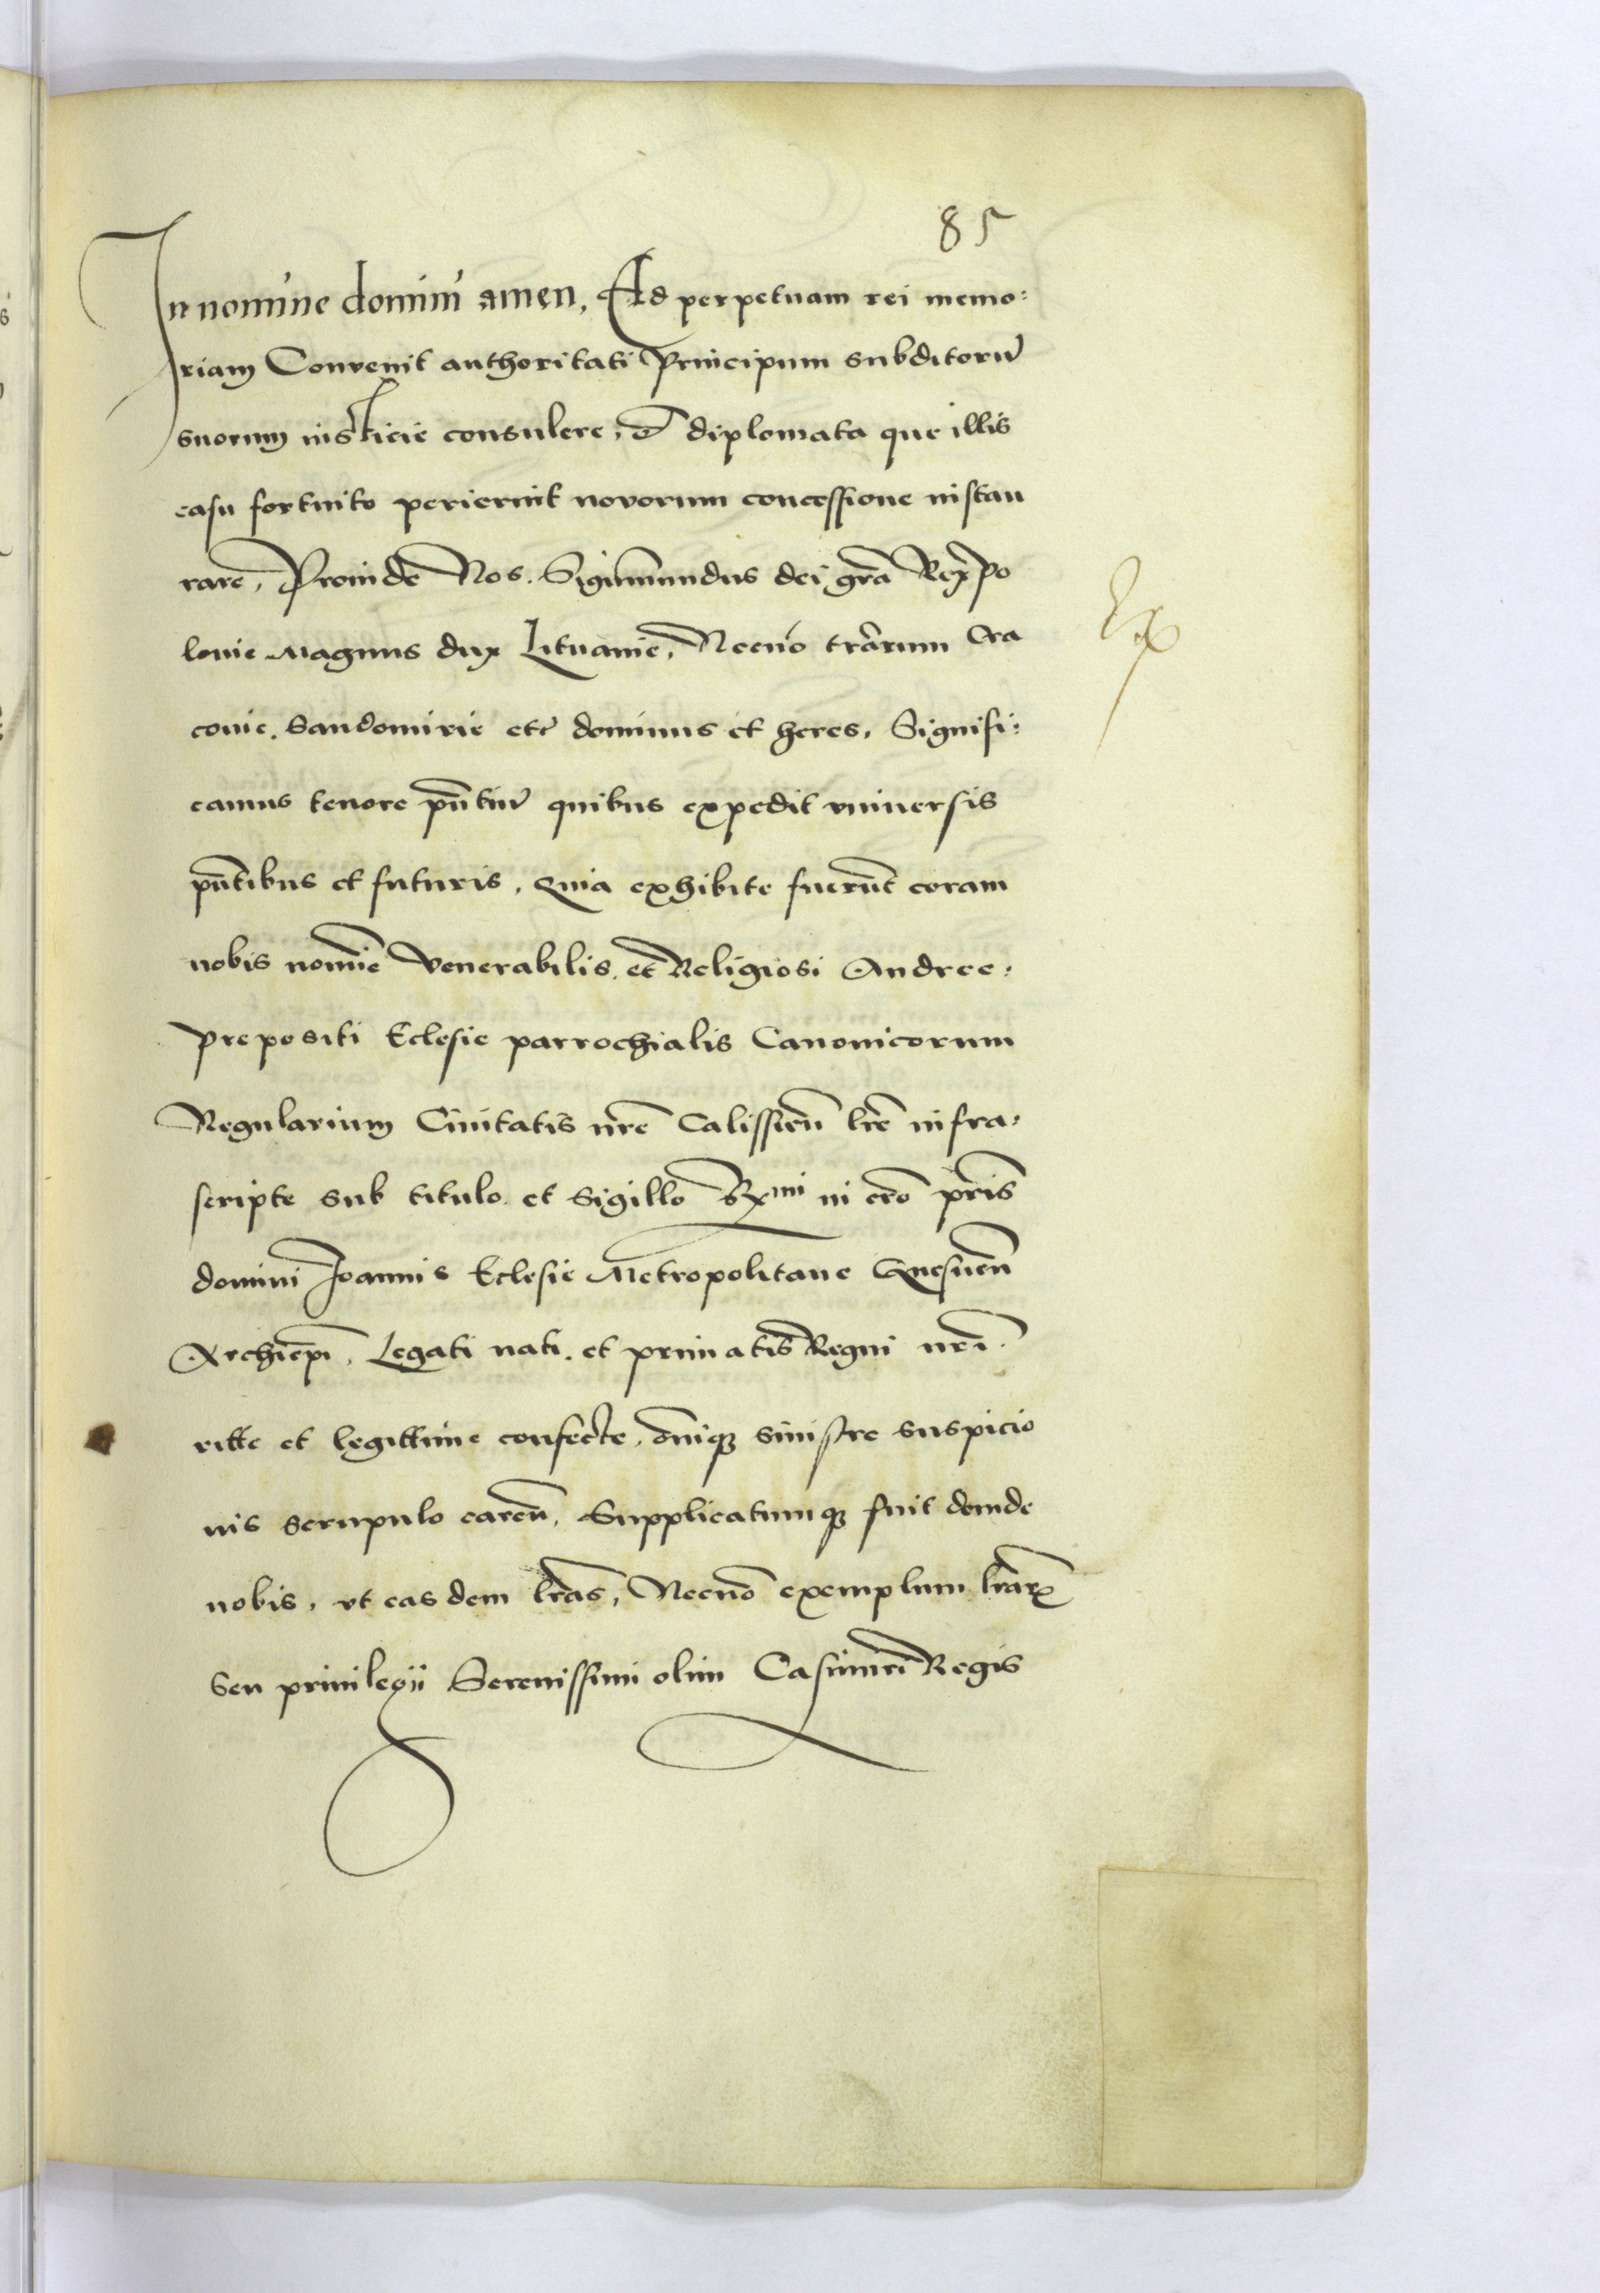 85
In nomine domini amen, Ad perpetuam rei memo:
riam Convenit authoritati Principum subditorū
suorum iusticie consulere, et diplomata que illis
casu fortuito perierint novorum concessione instau
rare, Proinde Nos. Sigismundus dei grā Rex Po
lonie Magnus dux Lituanie, Necnō trārum Cra
covie. Sandomirie etc̄ dominus et heres, Signifi:
camus tenore pn̄tiū quibus expedit vniversis
pn̄tibus et futuris, Quia exhibite fuerūt coram
nobis nomīe Venerabilis. et Religiosi Andree:
prepositi Eclesie parrochialis Canonicorum
Regularium Civitatis nr̄e Calissieñ lr̄e infra:
scripte sub titulo. et Sigillo Rx^mi in cr̄o pr̄is
domini Joannis Eclesie Metropolitane Gnesneñ
Archiep̄i, Legati nati. et primatis Regni nr̄i.
ritte et legittime confecte, om̄iqꝫ sinistre suspicio
nis scrupulo careñ, Supplicatumqꝫ fuit deinde
nobis, vt eas dem lr̄as, Necnō exemplum lr̄arꝝ
seu privilegii Serenissimi olim Casimiri Regis
Ex